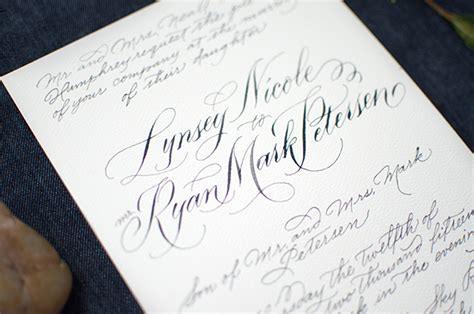 Mr. and Mrs. Neal
Humphrey request the
of your company at the
of their daughter
Lynsey Nicole
to
mr. Ryan Mark Petersen
Son of Mr. and Mrs. Mark
Petersen
the Twelfth of
Two thousand fifteen
in the evening
Sky